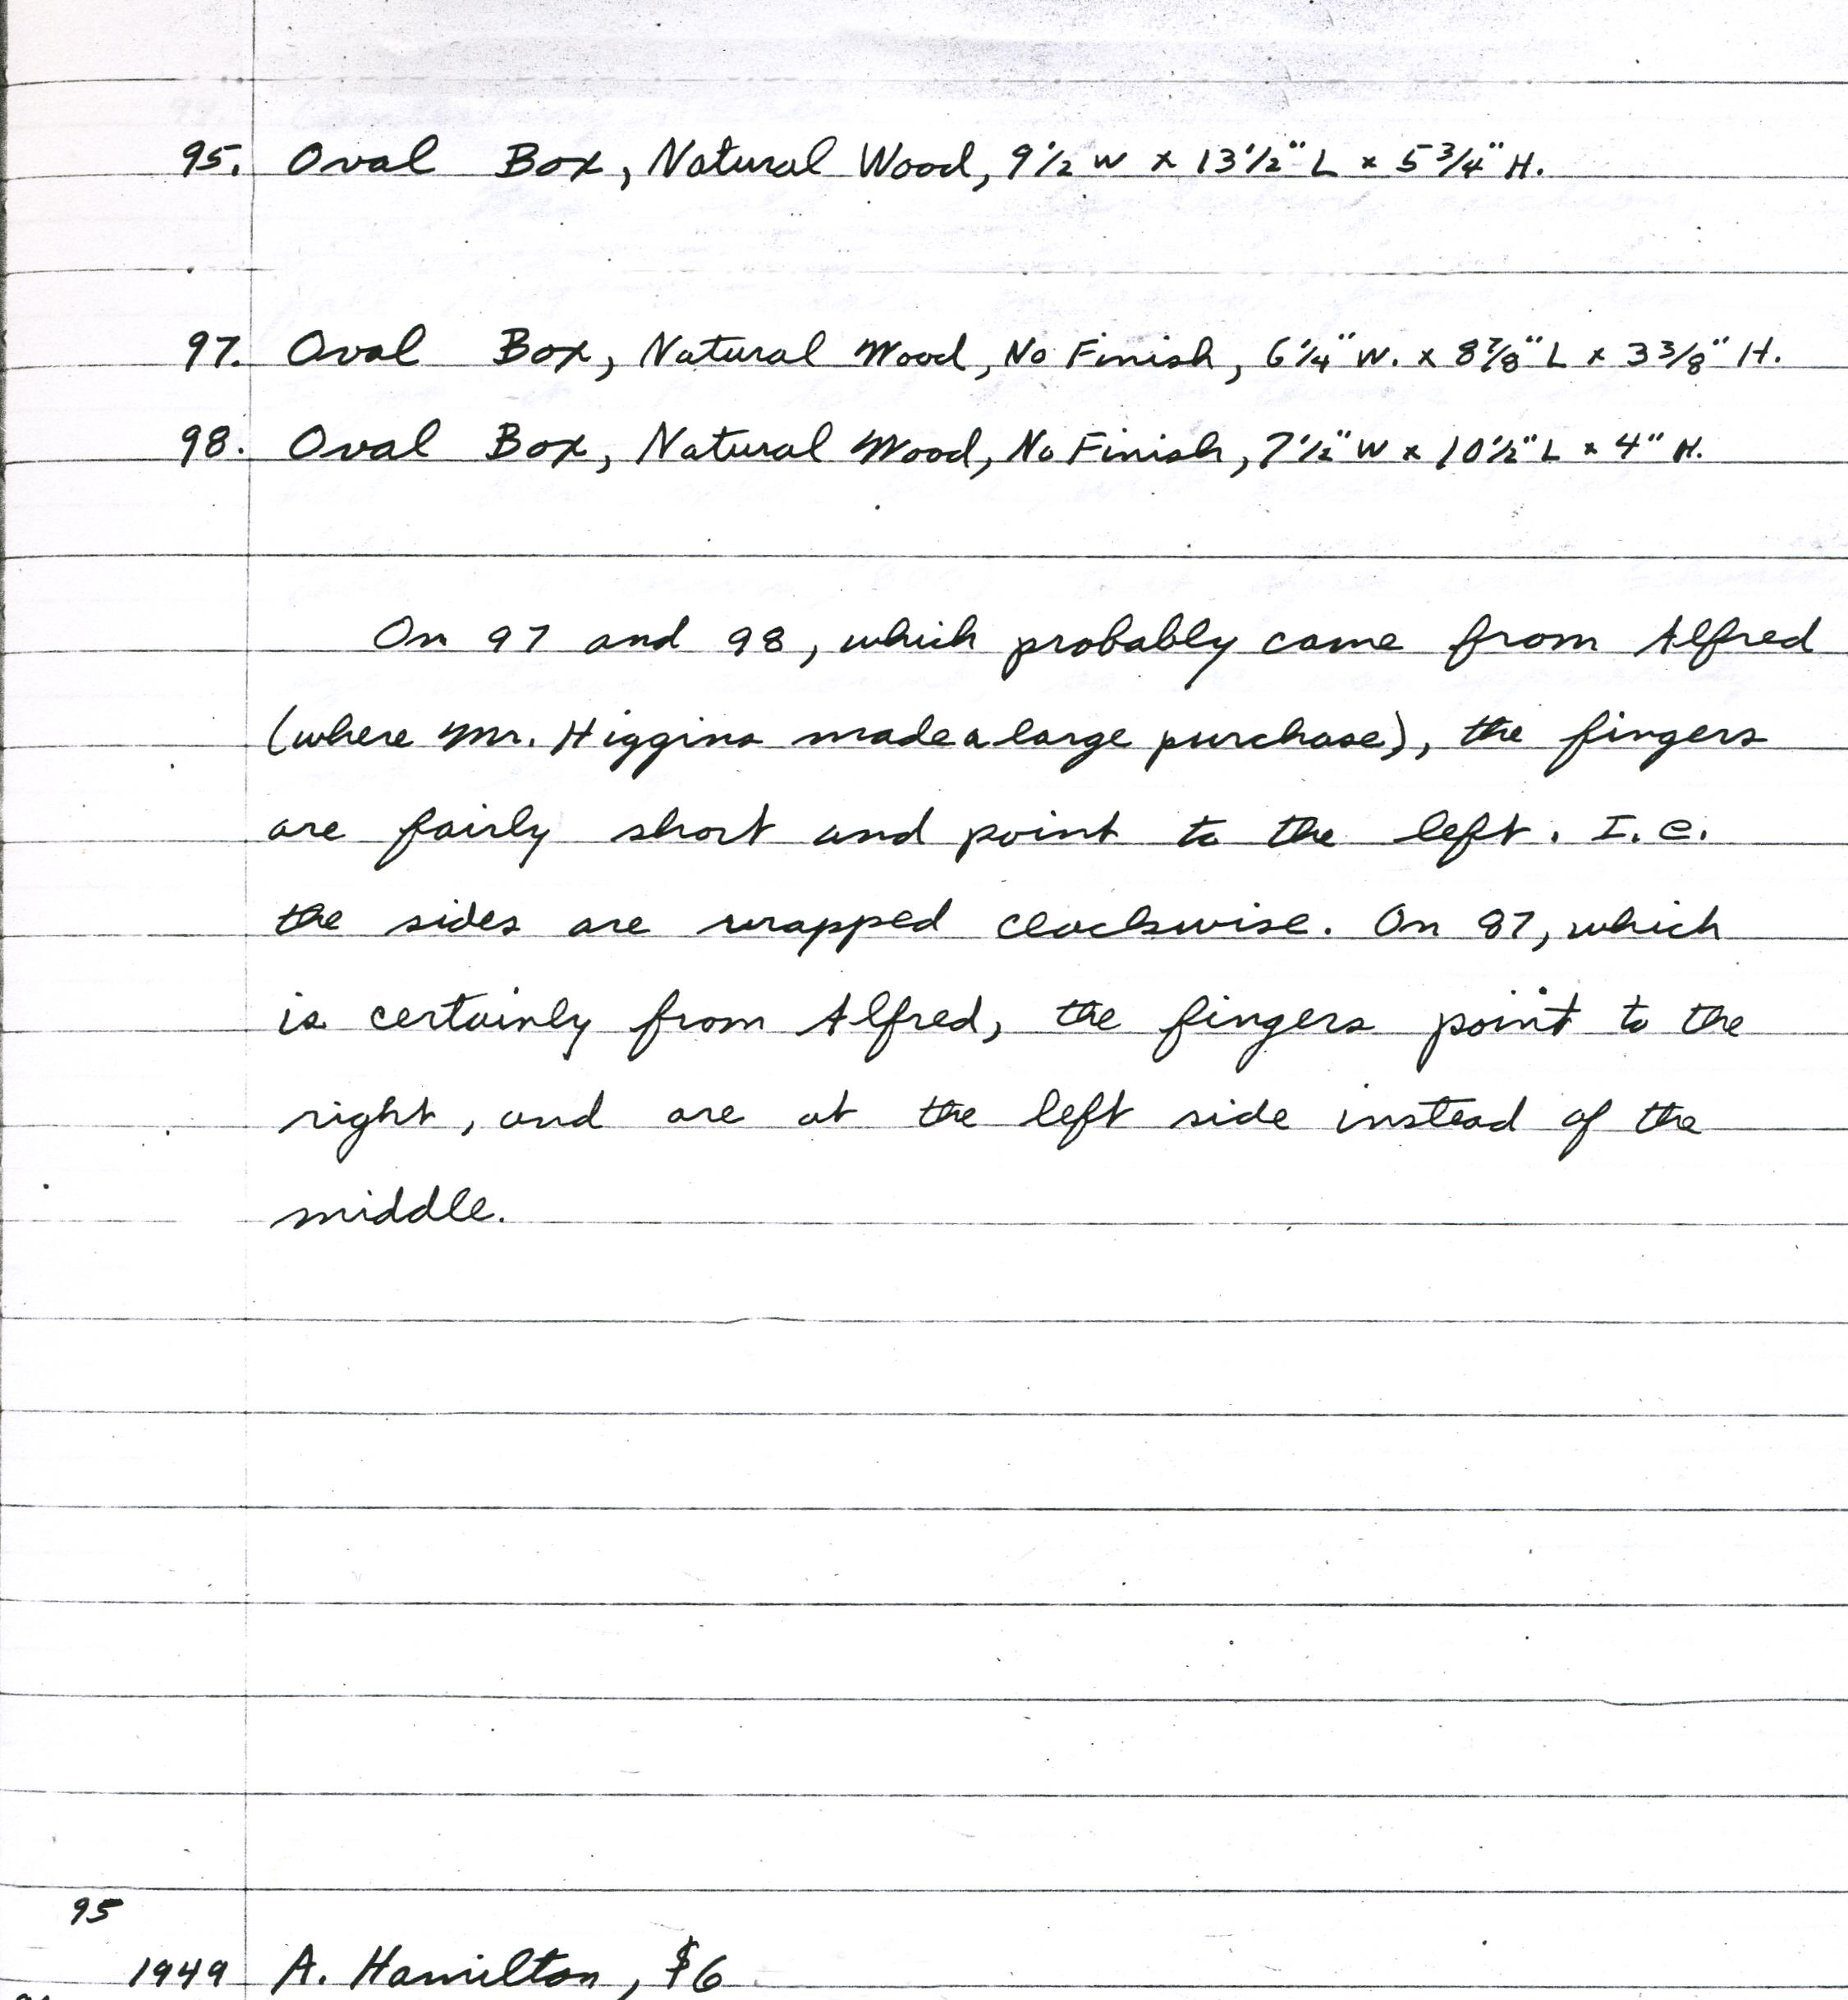 95. Oval Box, Natural Wood, 9 1/2 W x 13 1/2" L x 5 3/4" H.
97. Oval Box, Natural Wood, No Finish, 6 1/4" W. x 8 7/8" L x 3 3/8" H.
98. Oval Box, Natural Wood, No Finish, 7 1/2" W x 10 1/2" L x 4" H.
On 97 and 98, which probably came from Alfred
(where Mr. Higgins made a large purchase), the fingers
are fairly short and point to the left. I.e.
the sides are wrapped clockwise. On 87, which
is certainly from Alfred, the fingers point to the
right, and are at the left side instead of the
middle.
95
1949 A. Hamilton, $6